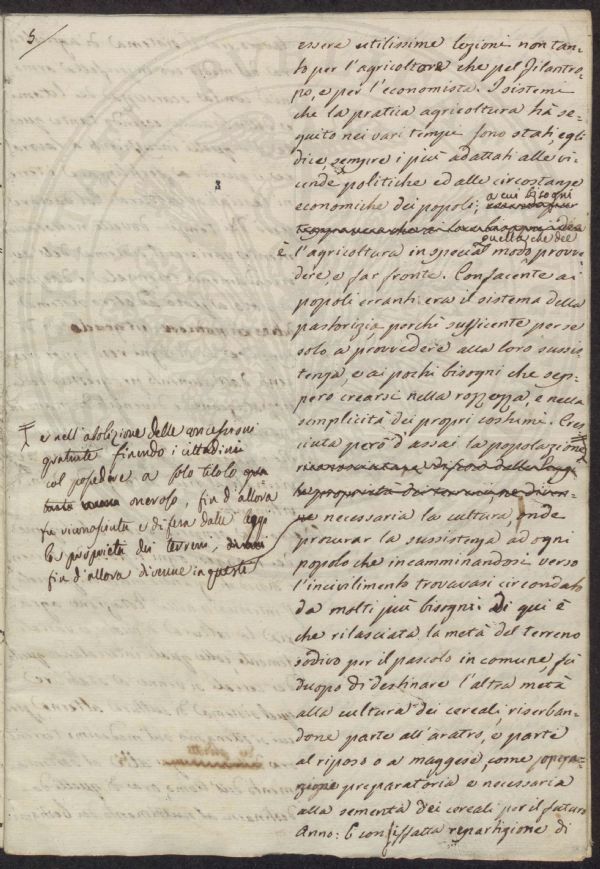 5.
essere utilissime lezioni non tan-
to per l'agricoltore che pel Filantro-
po, e per l'economista. I sistemi
che la pratica agricoltura hà se-
guito nei vari tempi sono stati, egli
dice, sempre i più adattati alle vi-
cende politiche ed alle circostanze
economiche dei popoli; a cui bisogni
è quella che del
l'agricoltura in special modo provve-
dere, e far fronte. Confacente ai
popoli erranti era il sistema della
pastorizia, perchè sufficente per se
solo a provvedere alla loro sussis-
tenza, e ai pochi bisogni che sep-
pero crearsi nella rozzezza, e nella
semplicità dei propri costumi. Cres-
ciuta però d'assai la popolazione
riconosciuta e difesa dalle Leggi
la proprietà dei terreni diven-
ne necessaria la cultura, onde
procurar la sussistenza ad ogni
popolo che incamminandosi verso
l'incivilimento trovavasi circondato
da molti più bisogni. Di qui è
che rilasciata la metà del terreno
sodivo per il pascolo in comune, fù
duopo di destinare l'altra metà
alla cultura dei cereali, riserban-
done parte all'aratro, e parte
al riposo o a maggese, come opera-
zione preparatoria e necessaria
alla sementa dei cereali per il futuro
Anno: E con siffatta repartizione di
e nell'abolizione delle concessioni
gratuite fissando i cittadini
col possedere a solo titolo
oneroso, fin d'allora
fu riconosciuta e difesa dalle leggi
la proprietà dei terreni,
fin d'allora divenne in questi